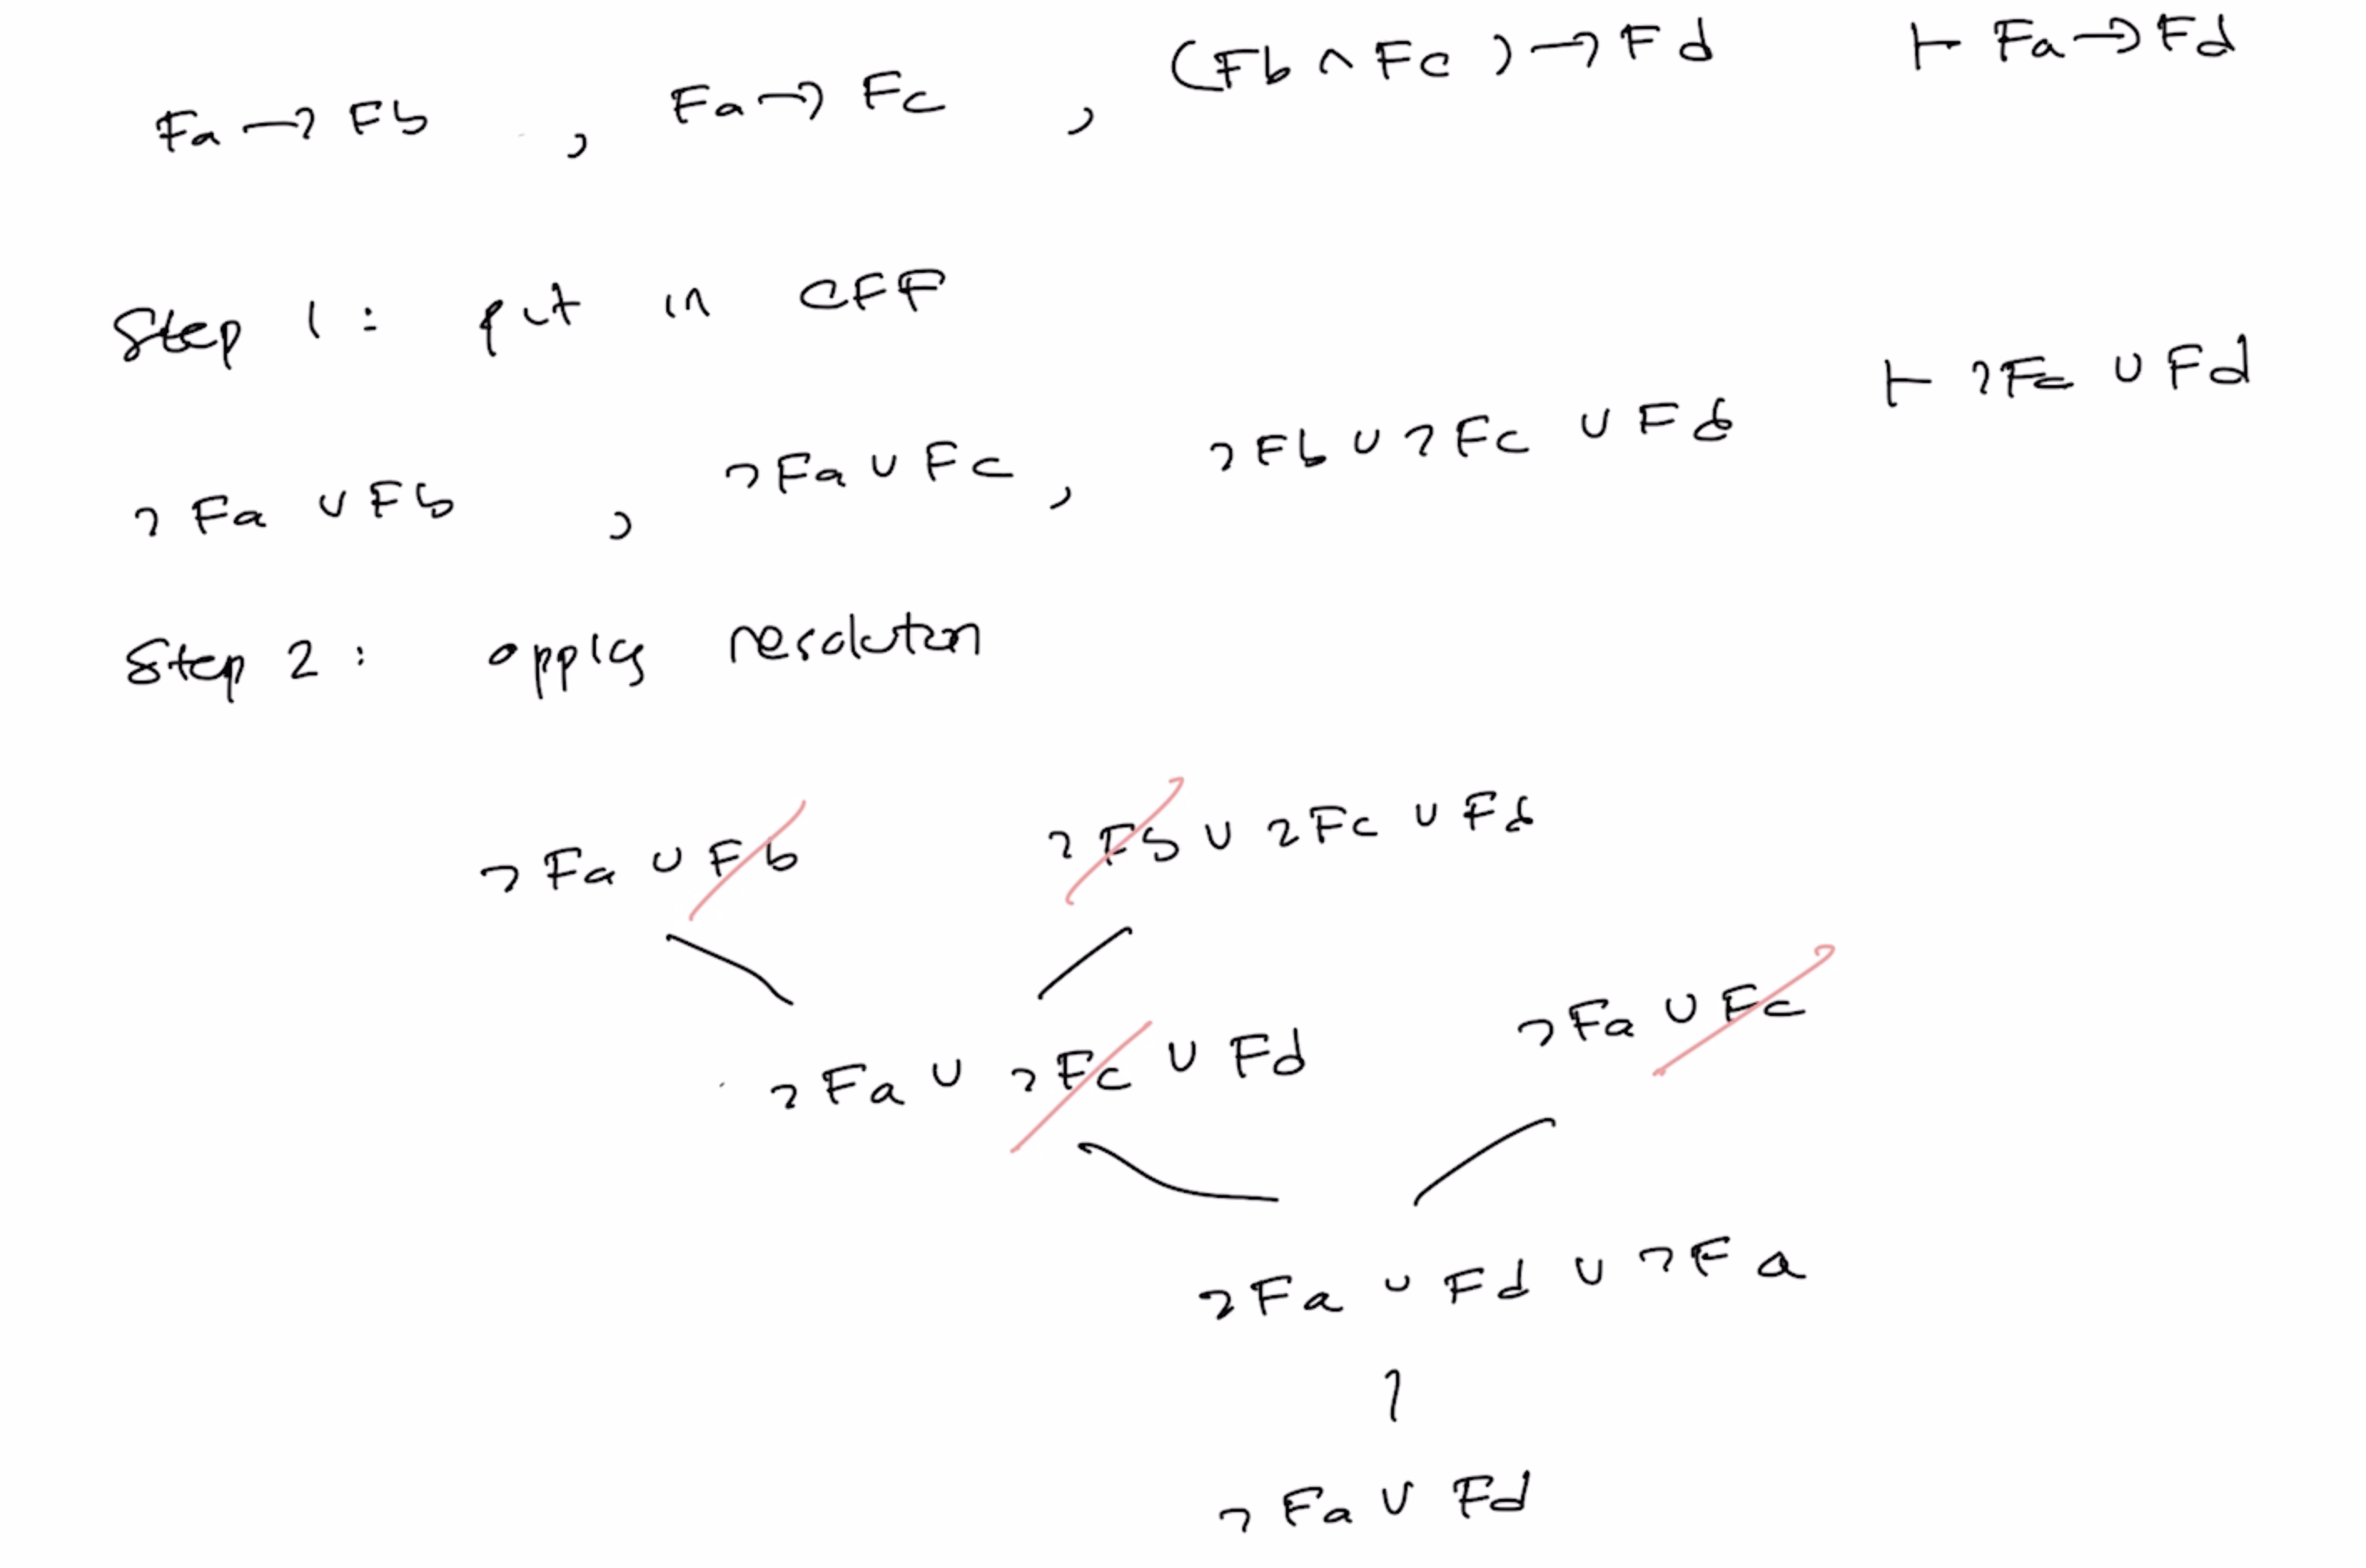 Fa → Fb , Fa → Fc , (Fb ∧ Fc) → Fd ⊢ Fa → Fd
Step 1: put in CFF
¬Fa ∪ Fb , ¬Fa ∪ Fc , ¬Fb ∪ ¬Fc ∪ Fd ⊢ ¬Fc ∪ Fd
Step 2: apply resolution
¬Fa ∪ Fb ¬Fb ∪ ¬Fc ∪ Fd
¬Fa ∪ ¬Fc ∪ Fd ¬Fa ∪ Fc
¬Fa ∪ Fd ∪ ¬Fa
¬Fa ∪ Fd